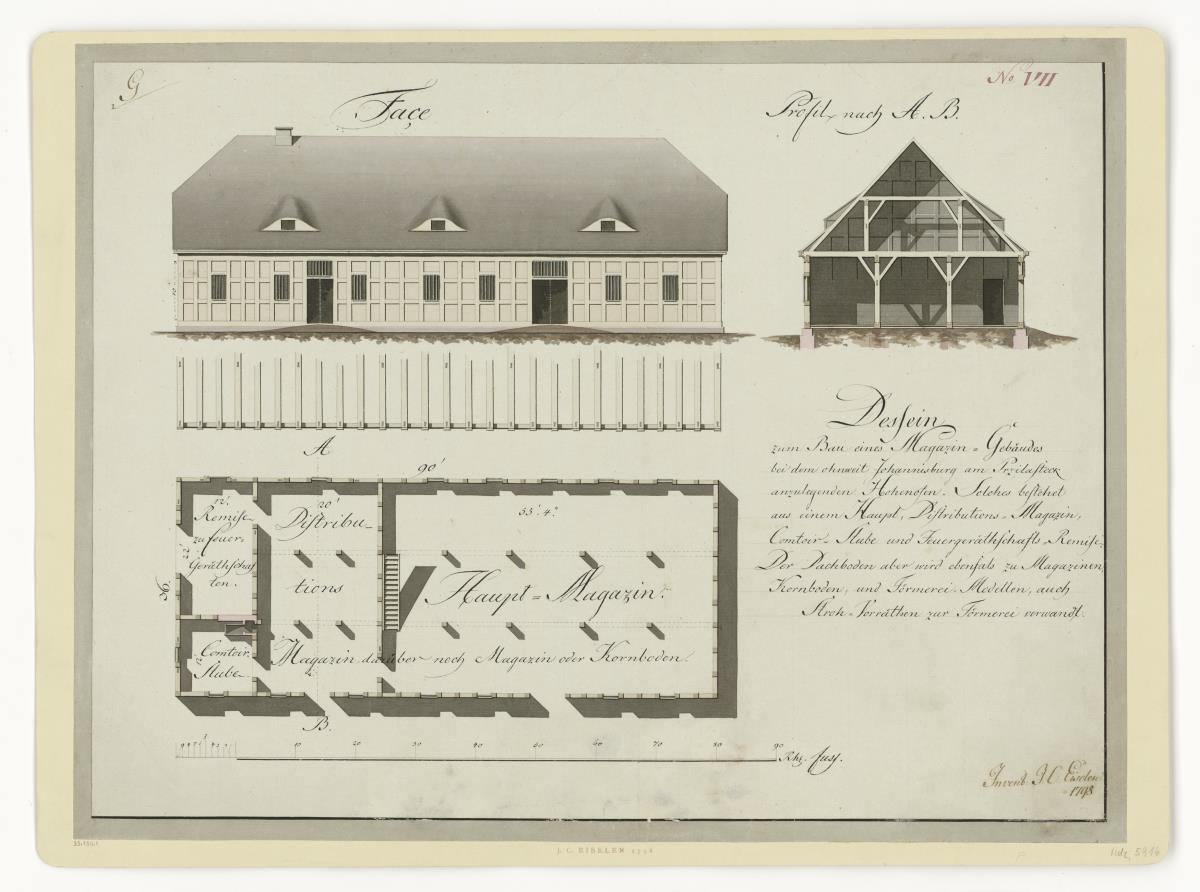 G
No VII
Façe
Profil nach A. B.
A
90'
36.
12'.
Remise
zu feuer,
Geräthschaf
ten.
22'
20'
Distribu-
tions
55'. 4".
Haupt-Magazin.
Comtoir.
Stube
12'
Magazin darüber noch Magazin oder Kornboden.
B.
10 20 30 40 50 60 70 80 90
Rhl. fuss.
Dessein
zum Bau eines Magazin-Gebäudes
bei dem ohnweit Johannisburg am Przilasteck
anzulegenden Hohenofen. Solches bestehet
aus einem Haupt, Distributions-Magazin,
Comtoir-Stube und Feuergeräthschafts-Remise.
Der Dachboden aber wird ebenfals zu Magazinen
Kornboden, und Förmerei-Modellen, auch
Stroh-Vorräthen zur Förmerei verwandt.
Invent. J C Eiselen
1798
J. C. EISELEN 1798
Hdz 5916